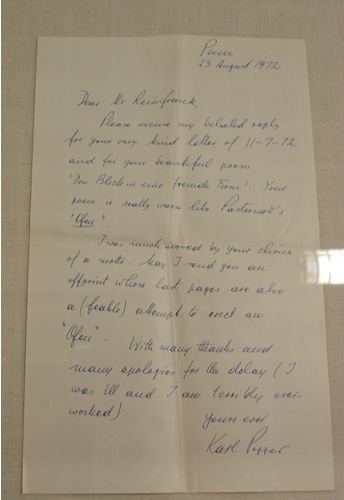 Penn
23 August 1972
Dear Mr Reinfrank,
Please excuse my belated reply
for your very kind letter of 11-7-72
and for your beautiful poem
'Den Blick in eine fremde'. Your
poem is really warm like Pasternak's
"Ofen".
I was much moved by your choice
of a motto. May I send you an
offprint whose last pages are also
a (feable) attempt to erect an
"Ofen". With many thanks and
many apologies for the delay (I
was ill and I am terribly over-
worked)
Yours ever
Karl Popper